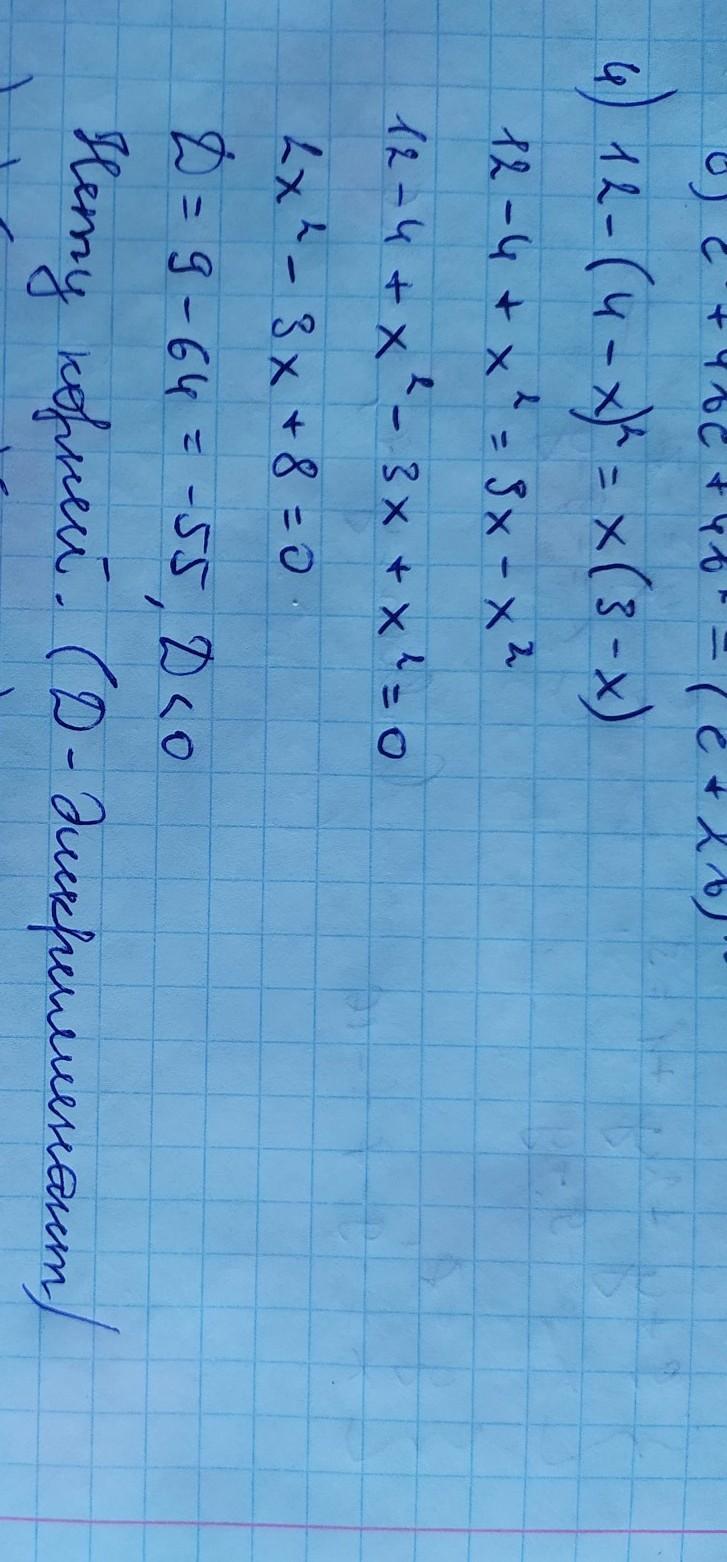 б) c² + 4bc + 4b² = (c + 2b)²
4) 12 - (4 - x)² = x(3 - x)
12 - 4 + x² = 3x - x²
12 - 4 + x² - 3x + x² = 0
2x² - 3x + 8 = 0
D = 9 - 64 = -55, D < 0
Нету корней. (D - дискриминант)